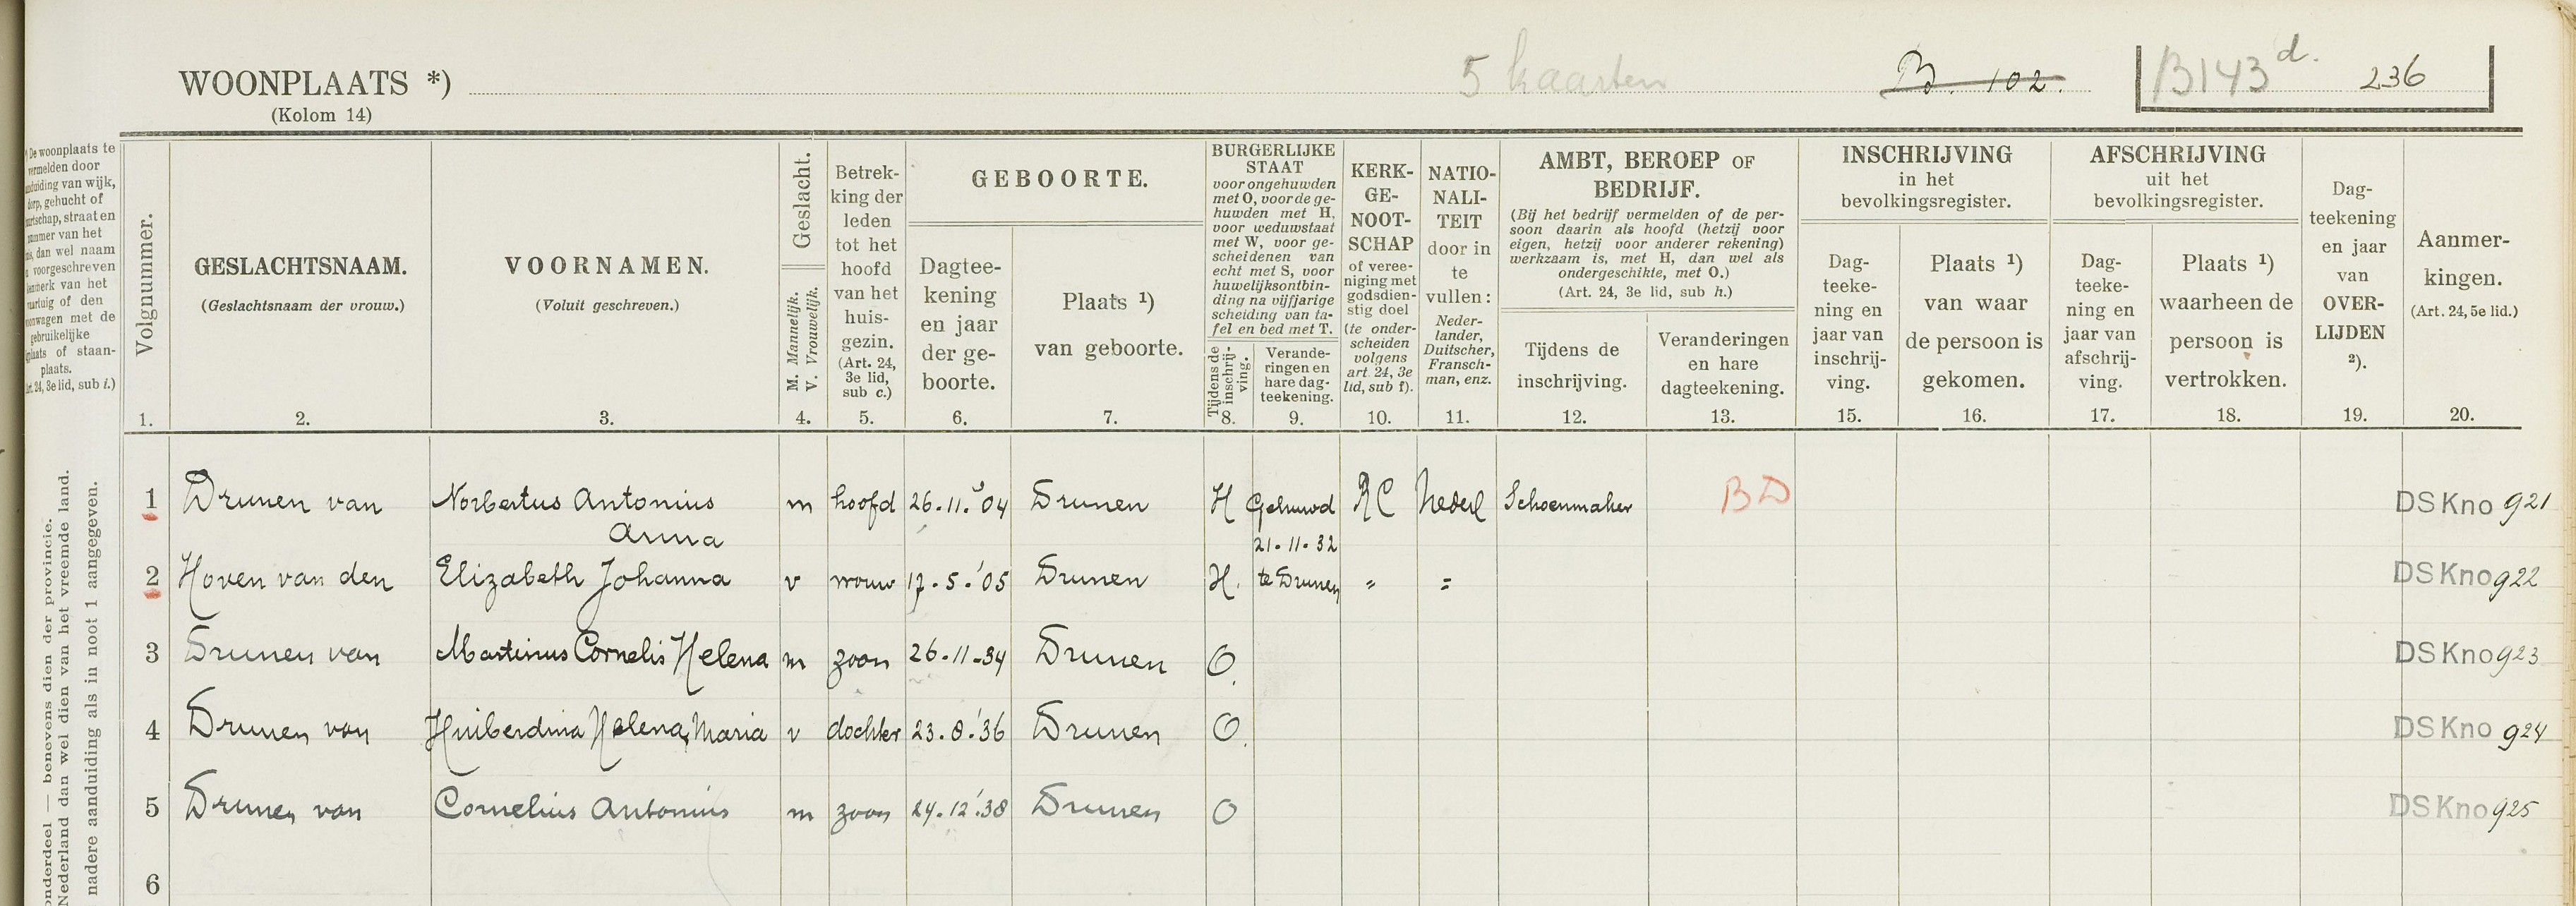 5 kaarten
B. 102.
B143 d.
236
WOONPLAATS *)
(Kolom 14)
De woonplaats te
vermelden door
wijk,
dorp, gehucht of
straat en
nummer van het
dan wel naam
voorgeschreven
van het
of den
woonwagen met de
gebruikelijke
of staan-
plaats.
24, 3e lid, sub i.)
onderdeel — benevens dien der provincie.
Nederland dan wel dien van het vreemde land.
nadere aanduiding als in noot 1 aangegeven.
Volgnummer.
1.
GESLACHTSNAAM.
(Geslachtsnaam der vrouw.)
2.
VOORNAMEN.
(Voluit geschreven.)
3.
Geslacht.
M. Mannelijk.
V. Vrouwelijk.
4.
Betrek-
king der
leden
tot het
hoofd
van het
huis-
gezin.
(Art. 24,
3e lid,
sub c.)
5.
GEBOORTE.
Dagtee-
kening
en jaar
der ge-
boorte.
6.
Plaats ¹)
van geboorte.
7.
BURGERLIJKE
STAAT
voor ongehuwden
met O, voor de ge-
huwden met H,
voor weduwstaat
met W, voor ge-
scheidenen van
echt met S, voor
huwelijksontbin-
ding na vijfjarige
scheiding van ta-
fel en bed met T.
Tijdens de
inschrij-
ving.
8.
Verande-
ringen en
hare dag-
teekening.
9.
KERK-
GE-
NOOT-
SCHAP
of veree-
niging met
godsdien-
stig doel
(te onder-
scheiden
volgens
art. 24, 3e
lid, sub f).
10.
NATIO-
NALI-
TEIT
door in
te
vullen:
Neder-
lander,
Duitscher,
Fransch-
man, enz.
11.
AMBT, BEROEP OF
BEDRIJF.
(Bij het bedrijf vermelden of de per-
soon daarin als hoofd (hetzij voor
eigen, hetzij voor anderer rekening)
werkzaam is, met H, dan wel als
ondergeschikte, met O.)
(Art. 24, 3e lid, sub h.)
Tijdens de
inschrijving.
12.
Veranderingen
en hare
dagteekening.
13.
INSCHRIJVING
in het
bevolkingsregister.
Dag-
teeke-
ning en
jaar van
inschrij-
ving.
15.
Plaats ¹)
van waar
de persoon is
gekomen.
16.
AFSCHRIJVING
uit het
bevolkingsregister.
Dag-
teeke-
ning en
jaar van
afschrij-
ving.
17.
Plaats ¹)
waarheen de
persoon is
vertrokken.
18.
Dag-
teekening
en jaar
van
OVER-
LIJDEN
²).
19.
Aanmer-
kingen.
(Art. 24, 5e lid.)
20.
1 Drunen van Norbertus Antonius m hoofd 26.11.'04 Drunen H Gehuwd RC Nederl Schoenmaker BD DSKno 921
Anna 21-11-32
2 Hoven van den Elizabeth Johanna v vrouw 17.5.'05 Drunen H. te Drunen " = DSKno 922
3 Drunen van Martinus Cornelis Helena m zoon 26-11-34 Drunen O. DSKno 923
4 Drunen van Huiberdina Helena Maria v dochter 23.8.'36 Drunen O. DSKno 924
5 Drunen van Cornelius Antonius m zoon 24.12.'38 Drunen O DSKno 925
6